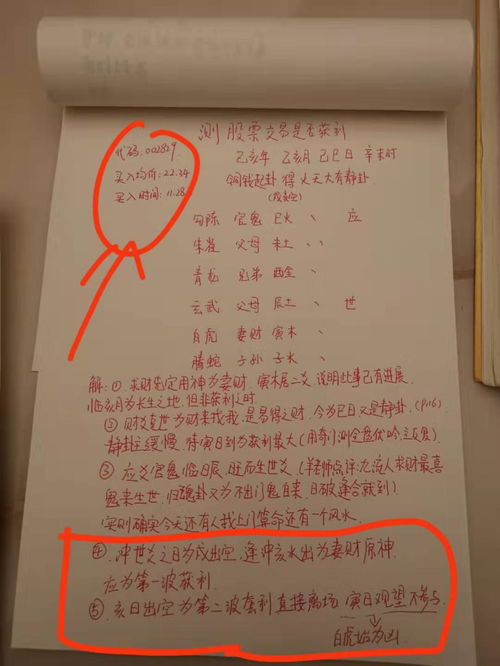 测股票交易是否获利
代码:002829
买入均价:22.34
买入时间:11.28
己亥年 乙亥月 己巳日 辛未时
铜钱起卦 得 火天大有静卦
(戌亥空)
勾陈 官鬼 巳火 、 应
朱雀 父母 未土 、、
青龙 兄弟 酉金 、
玄武 父母 辰土 、 世
白虎 妻财 寅木 、
腾蛇 子孙 子水 、
解:① 求财先定用神为妻财,寅木居二爻,说明此事已有进展,
临亥月为长生之地,但非获利之时.
② 财爻 世为财来找我,是易得之财,今为巳日又是静卦,(P116)
静卦主缓慢,待寅日到为获利最大(用奇门测全盘伏吟之反复)
③ 应爻官鬼临日辰,旺而生世爻(羊老师点评:九流人求财最喜
鬼来生世,归魂卦又为不出门鬼自来,日破逢合就到)
(实则确实今天还有人找上门算命还有一个风水
④. 冲世爻之日为戌出空,逢冲亥水出为妻财原神
应为第一波获利.
⑤. 亥日出空为第二波套利直接离场,寅日观望不参与.
白虎 为凶